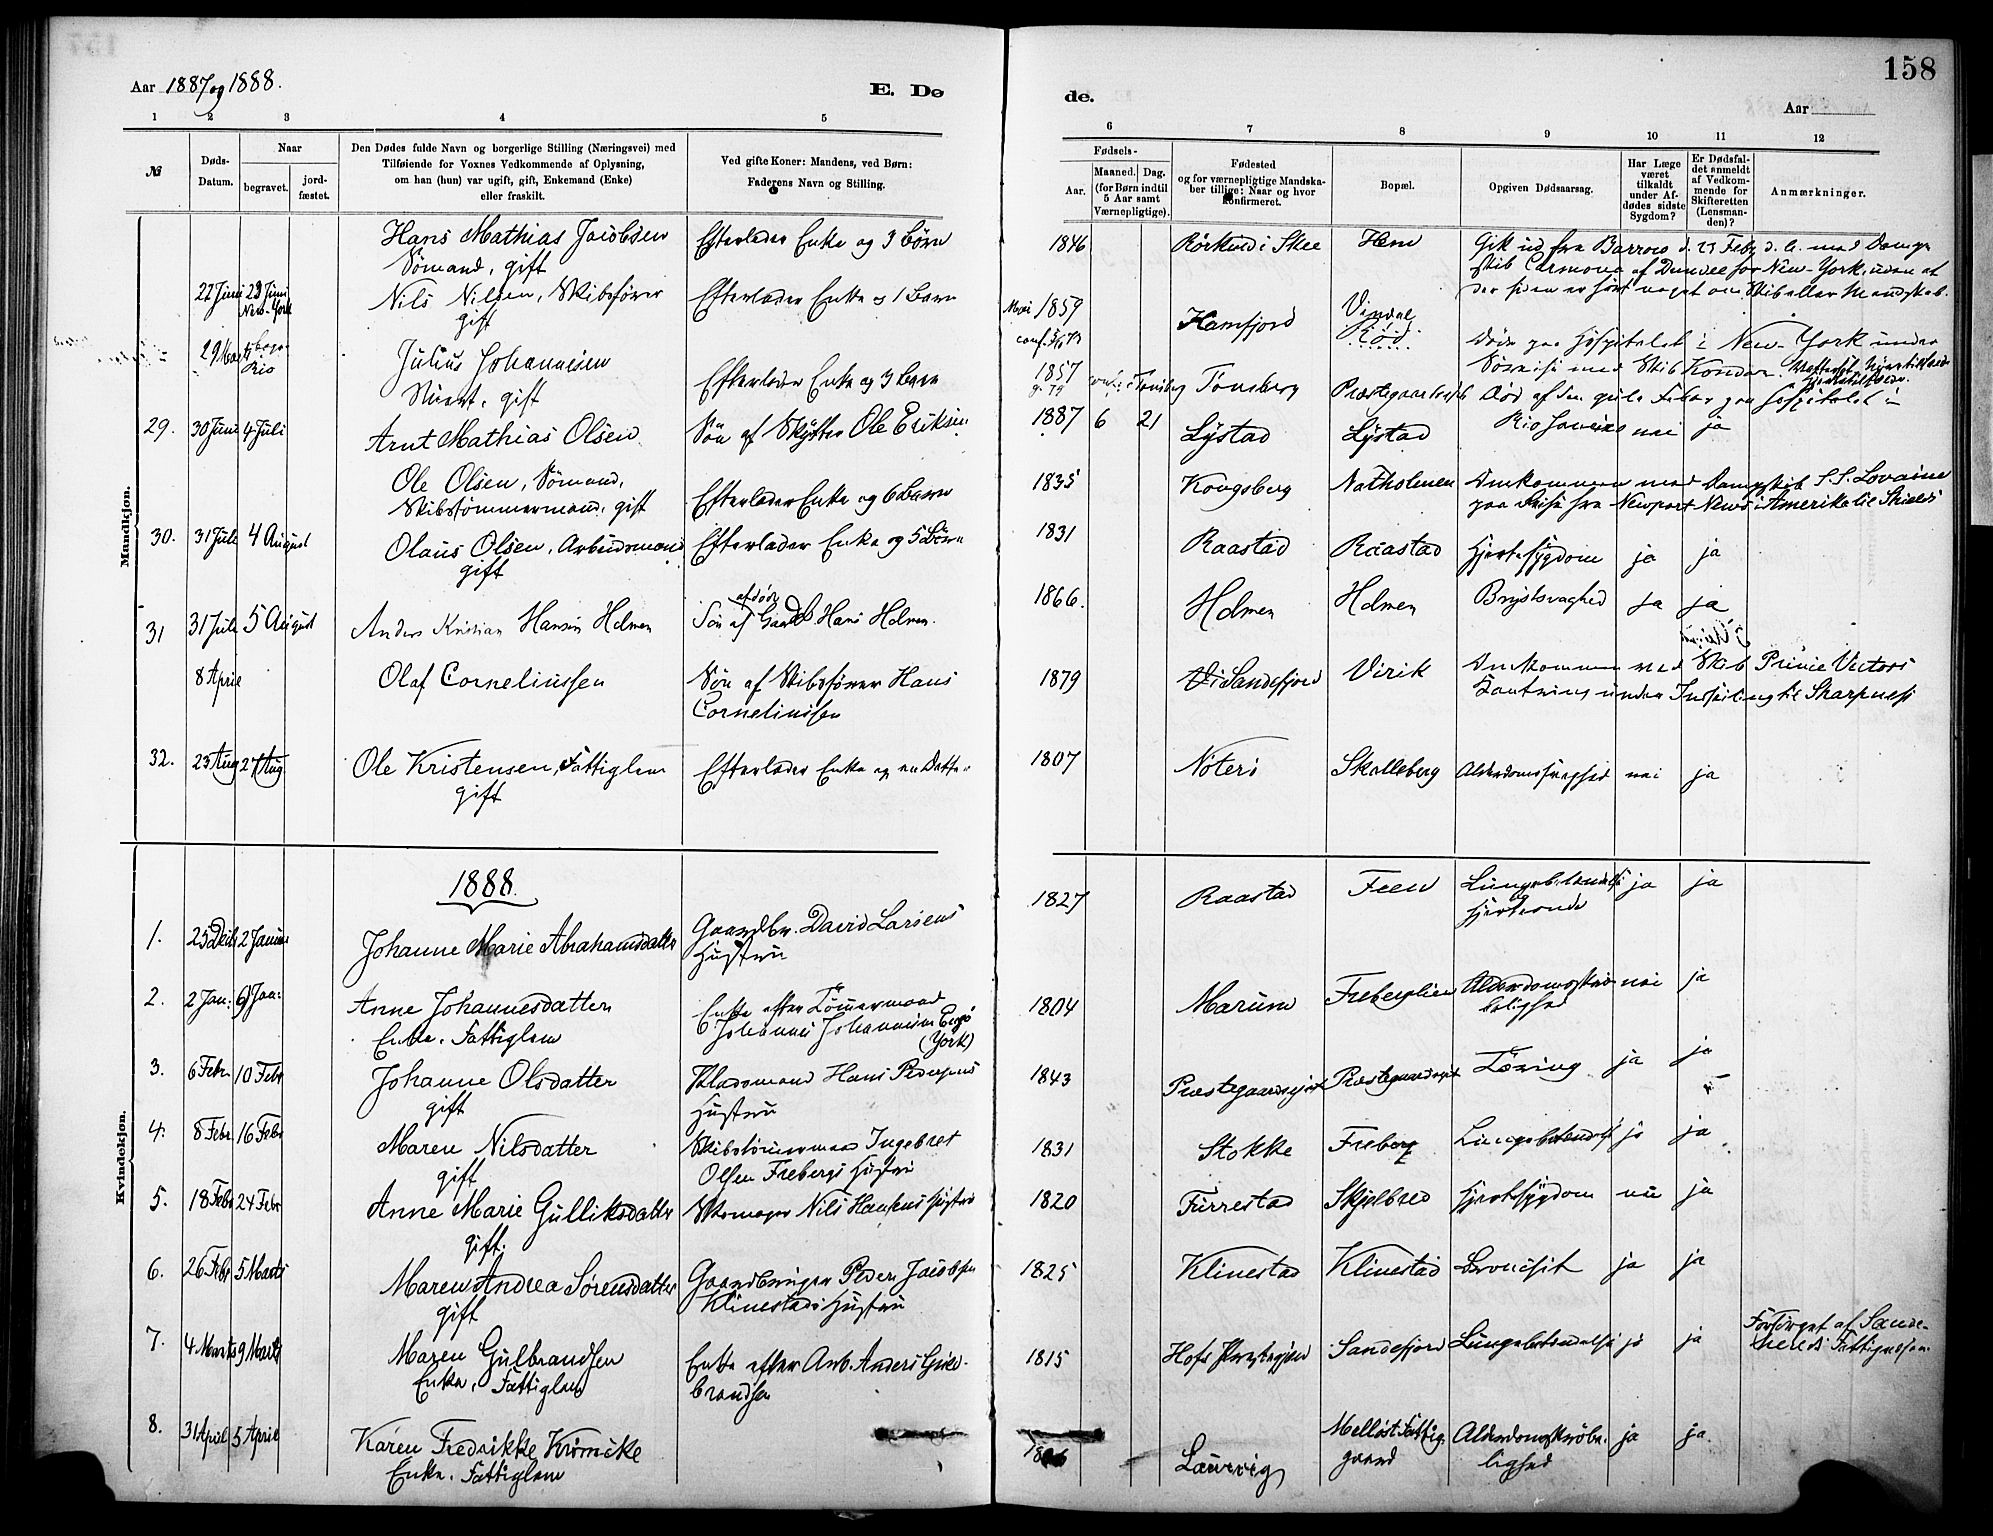 158
Aar 1887 og 1888.
E. Dø
de.
Aar
1 2 3 4 5
6 7 8 9 10 11 12
№
Døds-
Datum.
Naar
begravet.
jord-
fæstet.
Den Dødes fulde Navn og borgerlige Stilling (Næringsvei) med
Tilføiende for Voxnes Vedkommende af Oplysning,
om han (hun) var ugift, gift, Enkemand (Enke)
eller fraskilt.
Ved gifte Koner: Mandens, ved Børn:
Faderens Navn og Stilling.
Fødsels-
Aar.
Maaned. Dag.
(for Børn indtil
5 Aar samt
Værnepligtige).
Fødested
og for værnepligtige Mandska-
ber tillige: Naar og hvor
konfirmeret.
Bopæl.
Opgiven Dødsaarsag.
Har Læge
været
tilkaldt
under Af-
dødes sidste
Sygdom?
Er Dødsfal-
det anmeldt
af Vedkom-
mende for
Skifteretten
(Lensman-
den)?
Anmærkninger.
Mandkjøn.
Hans Mathias Jacobsen Efterlader Enke og 3 Børn 1846 i Skee Hem Gik ud fra Barrow d. 23 Feb d. A. med Damp-
Sømand, gift skib Carmona af Dundee for New-York, uden at
der siden er hørt noget om Skib eller Mandskab.
22 Juni 23 Juni New-York Nils Nilsen, Skibsfører Efterlader Enke og 1 Barn Mai 1859 Hamfjord Vindal
gift Rød Døde paa Hospitalet i New-York under
29 Marts Rio Julius Johannesen 1857 Tønsberg Søreise med Skib Condor.
Stuert, gift Efterlader Enke og 3 Børn Død af den gule Feber paa Hospitalet i
Rio Janeiro
29. 30 Juni 4 Juli Arnt Mathias Olsen Søn af Skytter Ole Eriksen 1887 6 21 Lystad Lystad nei ja
Ole Olsen, Sømand, Efterlader Enke og 6 Børn 1835 Kongsberg Natholmen Omkommen med Dampskib S.S. Lovaine
Skibstømmermand, gift paa Reise fra Newport News i Amerika til Shields
30. 31 Juli 4 August Olaus Olsen, Arbeidsmand Efterlader Enke og 5 Børn 1831 Raastad Raastad Hjertesygdom ja ja
gift
31 31 Juli 5 August Anders Kristian Hansen Holmen Søn af afdøde Gaardb. Hans Holmen. 1866. Holmen Holmen Brystsvaghed ja ja
8 April Olaf Corneliussen Søn af Skibsfører Hans 1879 V. i Sandefjord Virik Omkommen ved Skib Prince Victors
Corneliussen Kantring under Indseiling til Sharpness
32. 23 Aug 27 Aug Ole Kristensen, Fattiglem Efterlader Enke og en Datter 1807 Nøterø Skalleberg Alderdomssvaghed nei ja
gift
Kvindekjøn.
1888.
1. 25 Decbr 2 Januar Johanne Marie Abrahamsdatter Gaardbr. David Larsens 1827 Raastad Feen Lungebetændelse ja ja
Hustru Hjerteonde
2. 2 Jan: 9 Jan: Anne Johannesdatter Enke efter Tømmermand 1804 Marum Freberglien Alderdomsskrø- nei ja
Enke. Fattiglem Johannes Johannesen belighed
(York)
3. 6 Febr 10 Febr Johanne Olsdatter Pladsmand Hans Pedersens 1843 Præstegaardsejet Præstegaardsejet Tæring ja ja
gift Hustru
4. 8 Febr. 16 Febr Maren Nilsdatter Skibstømmermand Ingebret 1831 Stokke Freberg Lungebetændelse ja ja
gift Olsen Frebergs Hustru
5. 18 Febr 24 Febr Anne Marie Gulliksdatter Skomager Nils Hansens Hustru 1820 Furrestad Skjelbred Hjertesygdom nei ja
gift.
6. 26 Febr 5 Marts Maren Andrea Sørensdatter Gaardbruger Peder Jacobsen 1825 Klinestad Klinestad Bronchit ja ja
gift Klinestads Hustru
7. 4 Marts 9 Marts Maren Gulbrandsen Enke efter Arb. Anders Gul- 1815 Hofs Præstegjeld Sandefjord Lungebetændelse ja ja Forsørget af Sande-
Enke, Fattiglem brandsen hereds Fattigvæsen
8. 31 April 5 April Karen Fredrikke Krøncke Laurvig Melløst Fattig Alderdomsskrøbe- ja ja.
Enke. Fattiglem gaard lighed